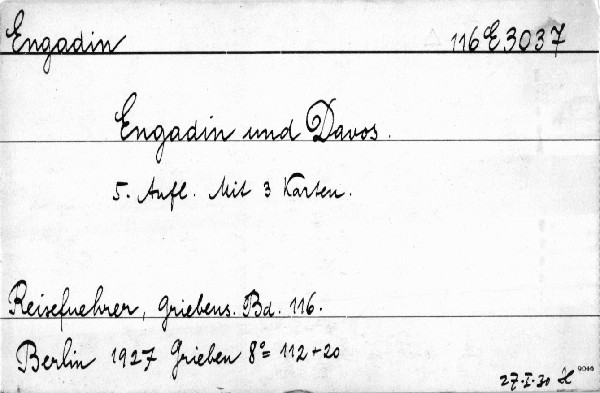 Engadin 116 E 3037
Engadin und Davos.
5. Aufl. Mit 3 Karten.
Reisefuehrer, Griebens. Bd. 116.
Berlin 1927 Grieben 8º = 112 + 20
27.I.30